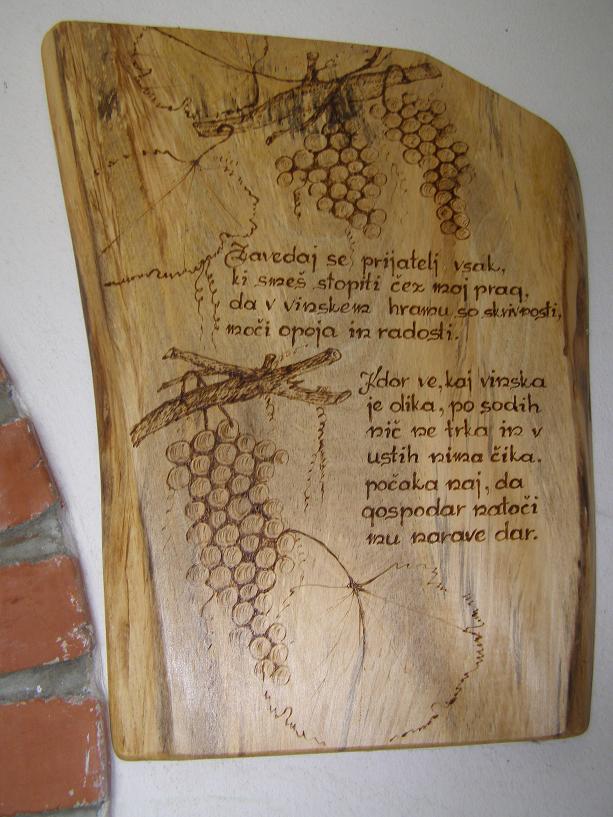 Zavedaj se prijatelj vsak,
ki smeš stopiti čez moj prag,
da v vinskem hramu so skrivnosti,
moči opoja in radosti.
Kdor ve, kaj vinska
je olika, po sodih
nič ne trka in v
ustih nima čika.
počaka naj, da
gospodar natoči
mu narave dar.